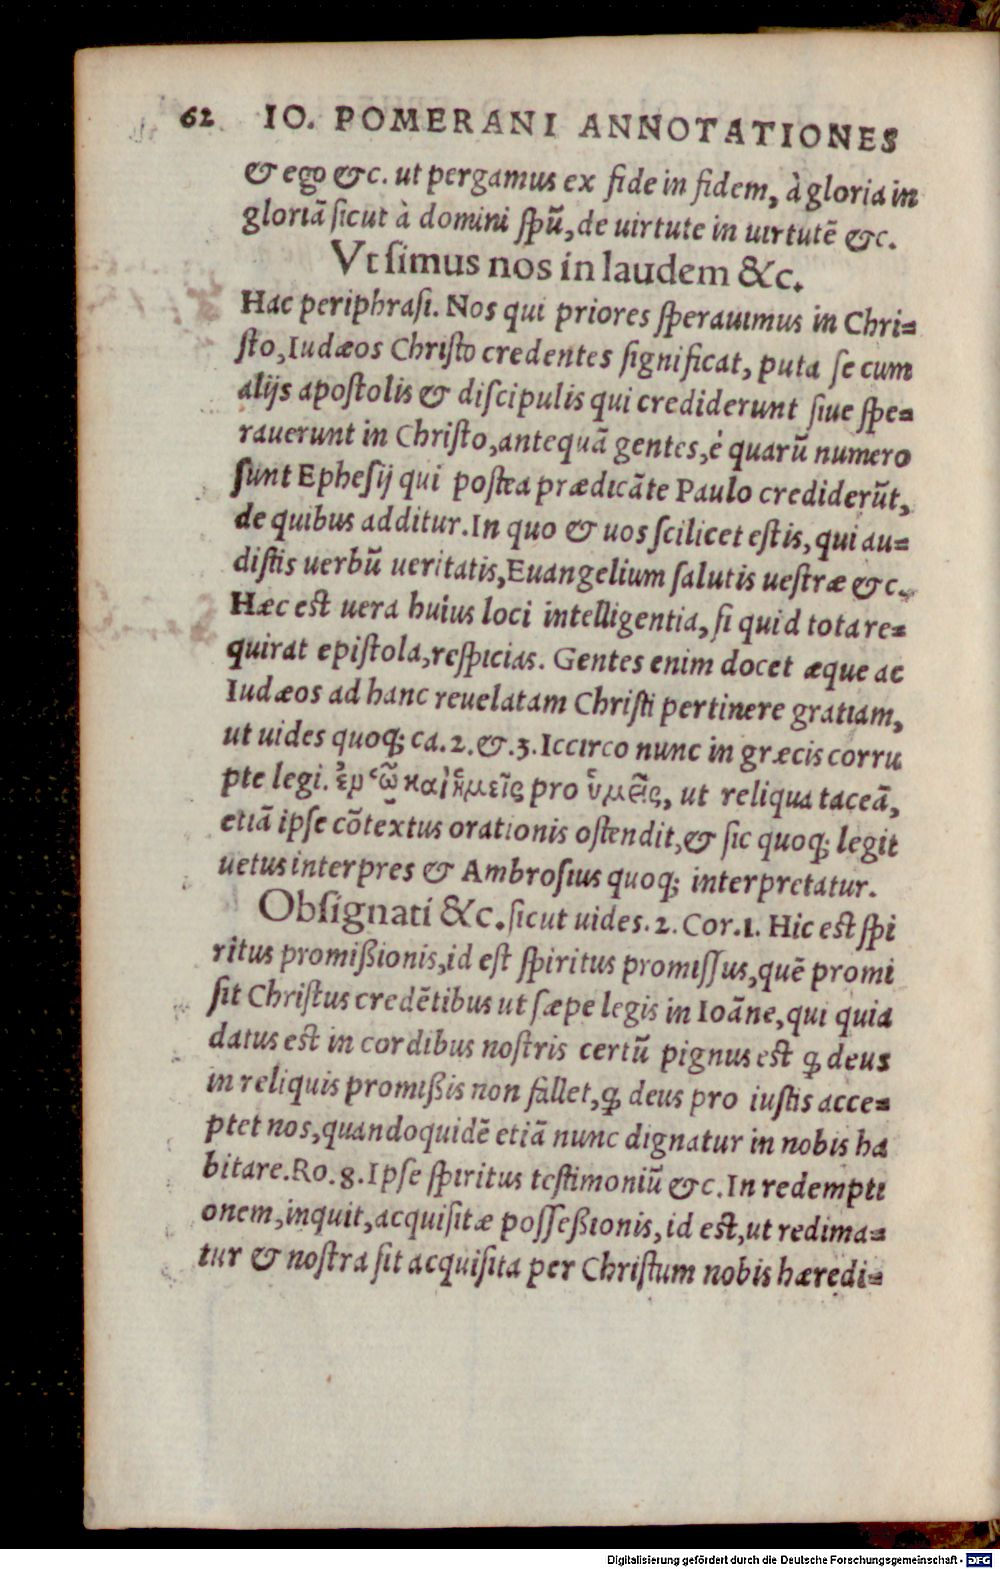 62 IO. POMERANI ANNOTATIONES
& ego &c. ut pergamus ex fide in fidem, à gloria in
gloriã ſicut à domini ſpũ, de uirtute in uirtutẽ &c.
Vt ſimus nos in laudem &c.
Hac periphraſi. Nos qui priores ſperauimus in Chri=
ſto, Iudæos Chriſto credentes ſignificat, puta ſe cum
alijs apoſtolis & diſcipulis qui crediderunt ſiue ſpe=
rauerunt in Chriſto, antequã gentes, è quarũ numero
ſunt Epheſij qui poſtea prædicãte Paulo crediderũt,
de quibus additur. In quo & uos ſcilicet eſtis, qui au=
diſtis uerbũ ueritatis, Euangelium ſalutis ueſtræ &c.
Hæc eſt uera huius loci intelligentia, ſi quid tota re=
quirat epiſtola, reſpicias. Gentes enim docet æque ac
Iudæos ad hanc reuelatam Chriſti pertinere gratiam,
ut uides quoq; ca. 2. &. 3. Iccirco nunc in græcis corru
pte legi. ἐρ ᾧ καὶ ἡμεῖς pro ὑμεῖς, ut reliqua taceã,
etiã ipſe cõtextus orationis oſtendit, & ſic quoq; legit
uetus interpres & Ambroſius quoq; interpretatur.
Obſignati &c. ſicut uides. 2. Cor. 1. Hic eſt ſpi
ritus promißionis, id eſt ſpiritus promiſſus, quẽ promi
ſit Chriſtus credẽtibus ut ſæpe legis in Ioãne, qui quia
datus eſt in cordibus noſtris certũ pignus eſt ꝙ deus
in reliquis promißis non fallet, ꝙ deus pro iuſtis acce=
ptet nos, quandoquidẽ etiã nunc dignatur in nobis ha
bitare. Ro. 8. Ipſe ſpiritus teſtimoniũ &c. In redempti
onem, inquit, acquiſitæ poſſeßionis, id eſt, ut redima=
tur & noſtra ſit acquiſita per Chriſtum nobis hæredi=
Digitalisierung gefördert durch die Deutsche Forschungsgemeinschaft - DFG